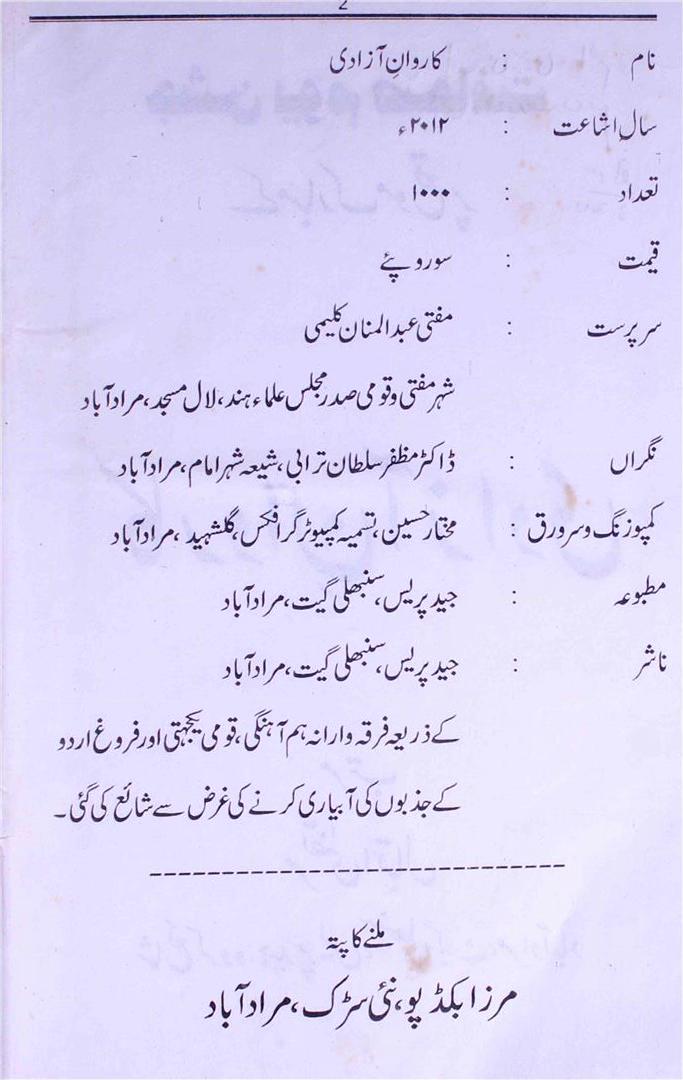 2
نام : کاروانِ آزادی
سالِ اشاعت : ۲۰۱۲ء
تعداد : ۱۰۰۰
قیمت : سو روپئے
سرپرست : مفتی عبدالمنان کلیمی
شہر مفتی و قومی صدر مجلس علماء ہند، لال مسجد، مرادآباد
نگراں : ڈاکٹر مظفر سلطان ترابی، شیعہ شہر امام، مرادآباد
کمپوزنگ و سرورق : مختار حسین، تسمیہ کمپیوٹر گرافکس، گلشہید، مرادآباد
مطبوعہ : جید پریس، سنبھلی گیت، مرادآباد
ناشر : جید پریس، سنبھلی گیت، مرادآباد
کے ذریعہ فرقہ وارانہ ہم آہنگی، قومی یکجہتی اور فروغ اردو
کے جذبوں کی آبیاری کرنے کی غرض سے شائع کی گئی۔
ملنے کا پتہ
مرزا بکڈپو، نئی سڑک، مرادآباد